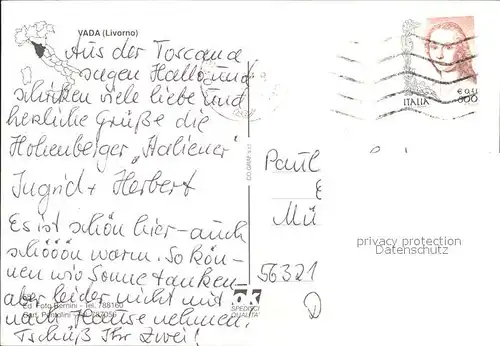 VADA (Livorno)
Aus der Toscana
sagen Hallo und
schicken viele liebe und
herzliche Grüße die
Hohenberger "Italiener"
Ingrid + Herbert
Es ist schön hier - auch
schööön warm. So kön-
nen wir Sonne tanken
aber leider nicht mit
nach Hause nehmen.
Tschüß Ihr Zwei!
Ed. Foto Bernini - Tel. 788160
ok
SPEDISCI
QUALITA'
ITALIA
€ 0,41
800
Paul
Mü
56321
D
privacy protection
Datenschutz